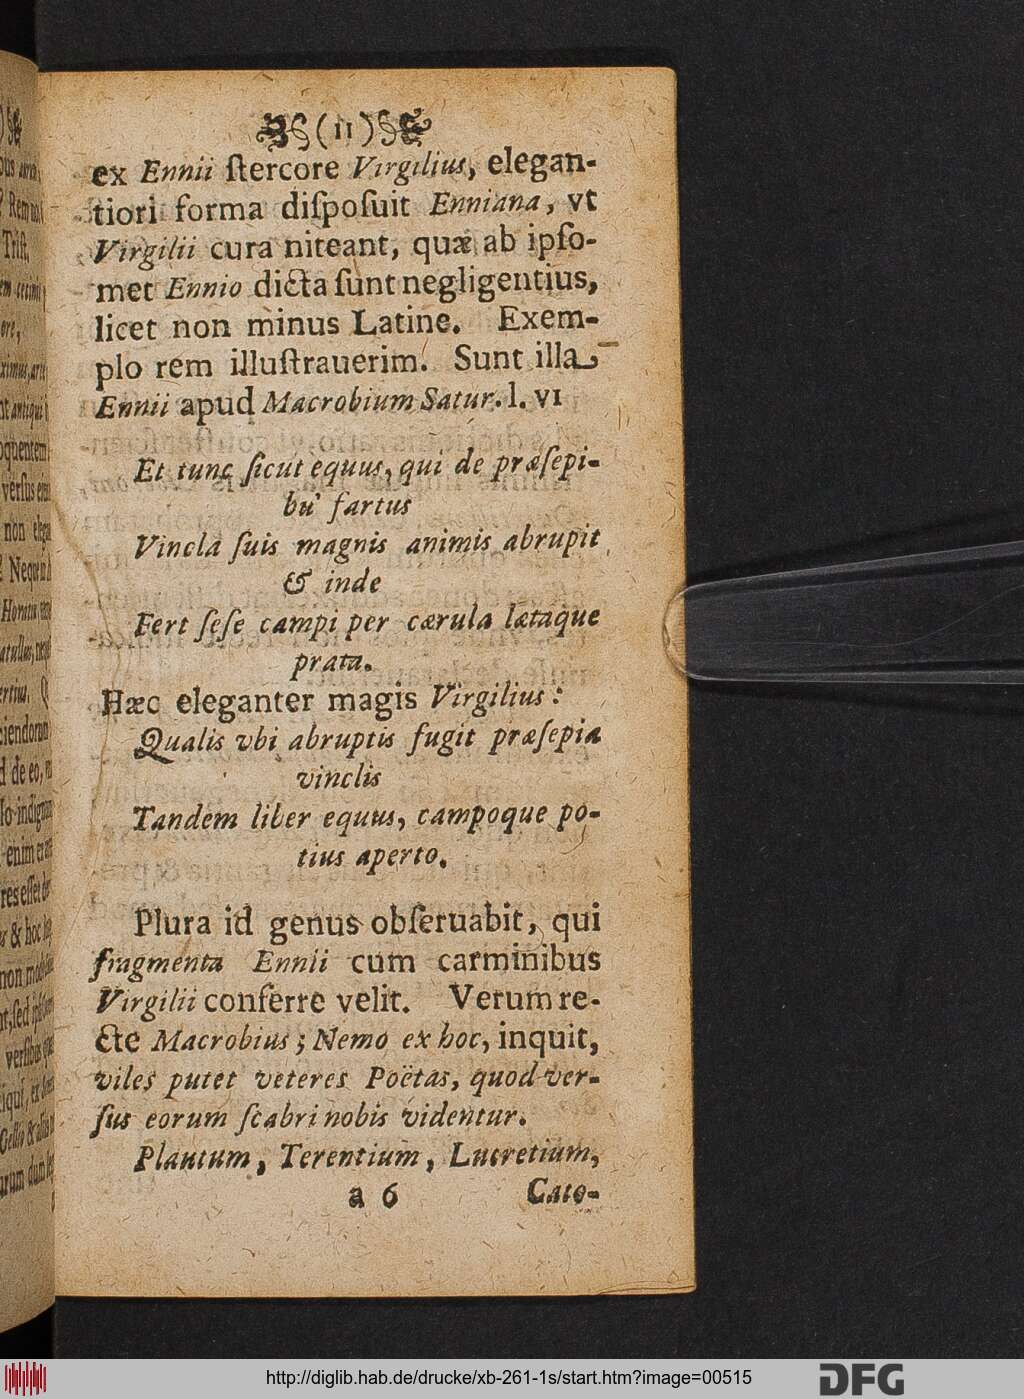 (11)
ex Ennii ſtercore Virgilius, elegan-
tiori forma diſpoſuit Enniana, vt
Virgilii cura niteant, quæ ab ipſo-
met Ennio dicta ſunt negligentius,
licet non minus Latine. Exem-
plo rem illuſtrauerim. Sunt illa
Ennii apud Macrobium Satur. l. VI
Et tunc ſicut equus, qui de præſepi-
bu' fartus
Vincla ſuis magnis animis abrupit
& inde
Fert ſeſe campi per cærula lætaque
prata.
Hæc eleganter magis Virgilius:
Qualis vbi abruptis fugit præſepia
vinclis
Tandem liber equus, campoque po-
tius aperto.
Plura id genus obſeruabit, qui
fragmenta Ennii cum carminibus
Virgilii conferre velit. Verum re-
cte Macrobius; Nemo ex hoc, inquit,
viles putet veteres Poëtas, quod ver-
ſus eorum ſcabri nobis videntur.
Plautum, Terentium, Lucretium,
a 6 Cato-
http://diglib.hab.de/drucke/xb-261-1s/start.htm?image=00515
DFG